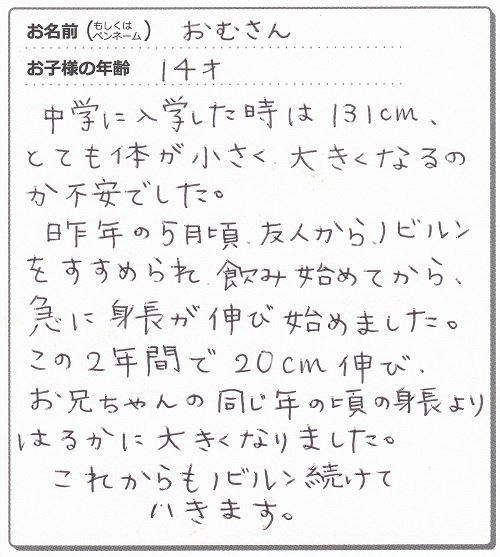 お名前（もしくはペンネーム） おむさん
お子様の年齢 14才
中学に入学した時は131cm、
とても体が小さく、大きくなるの
か不安でした。
昨年の5月頃、友人から、ノビルン
をすすめられ、飲み始めてから、
急に身長が伸び始めました。
この2年間で20cm伸び、
お兄ちゃんの同じ年の頃の身長より
はるかに大きくなりました。
これからもノビルン続けて
いきます。